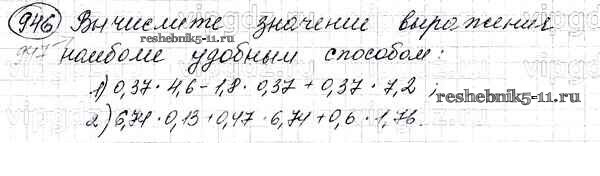 946 Вычислите значение выражения
наиболе удобным способом:
reshebnik5-11.ru
1) 0,37 · 4,6 - 1,8 · 0,37 + 0,37 · 7,2 ;
reshebnik5-11.ru
2) 6,74 · 0,13 + 0,47 · 6,74 + 0,6 · 1,76.